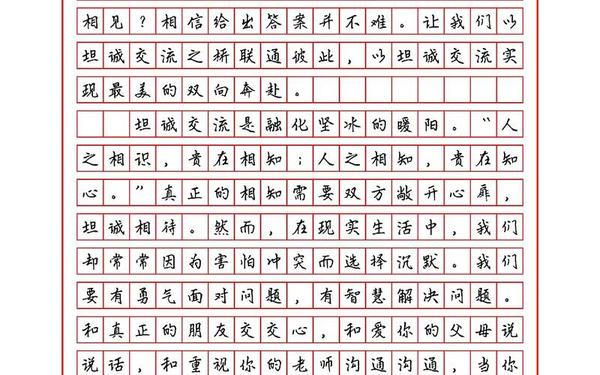 相见？相信给出答案并不难。让我们以
坦诚交流之桥联通彼此，以坦诚交流实
现最美的双向奔赴。
坦诚交流是融化坚冰的暖阳。“人
之相识，贵在相知；人之相知，贵在知
心。”真正的相知需要双方敞开心扉，
坦诚相待。然而，在现实生活中，我们
却常常因为害怕冲突而选择沉默。我们
要有勇气面对问题，有智慧解决问题。
和真正的朋友交交心，和爱你的父母说
说话，和重视你的老师沟通沟通，当你